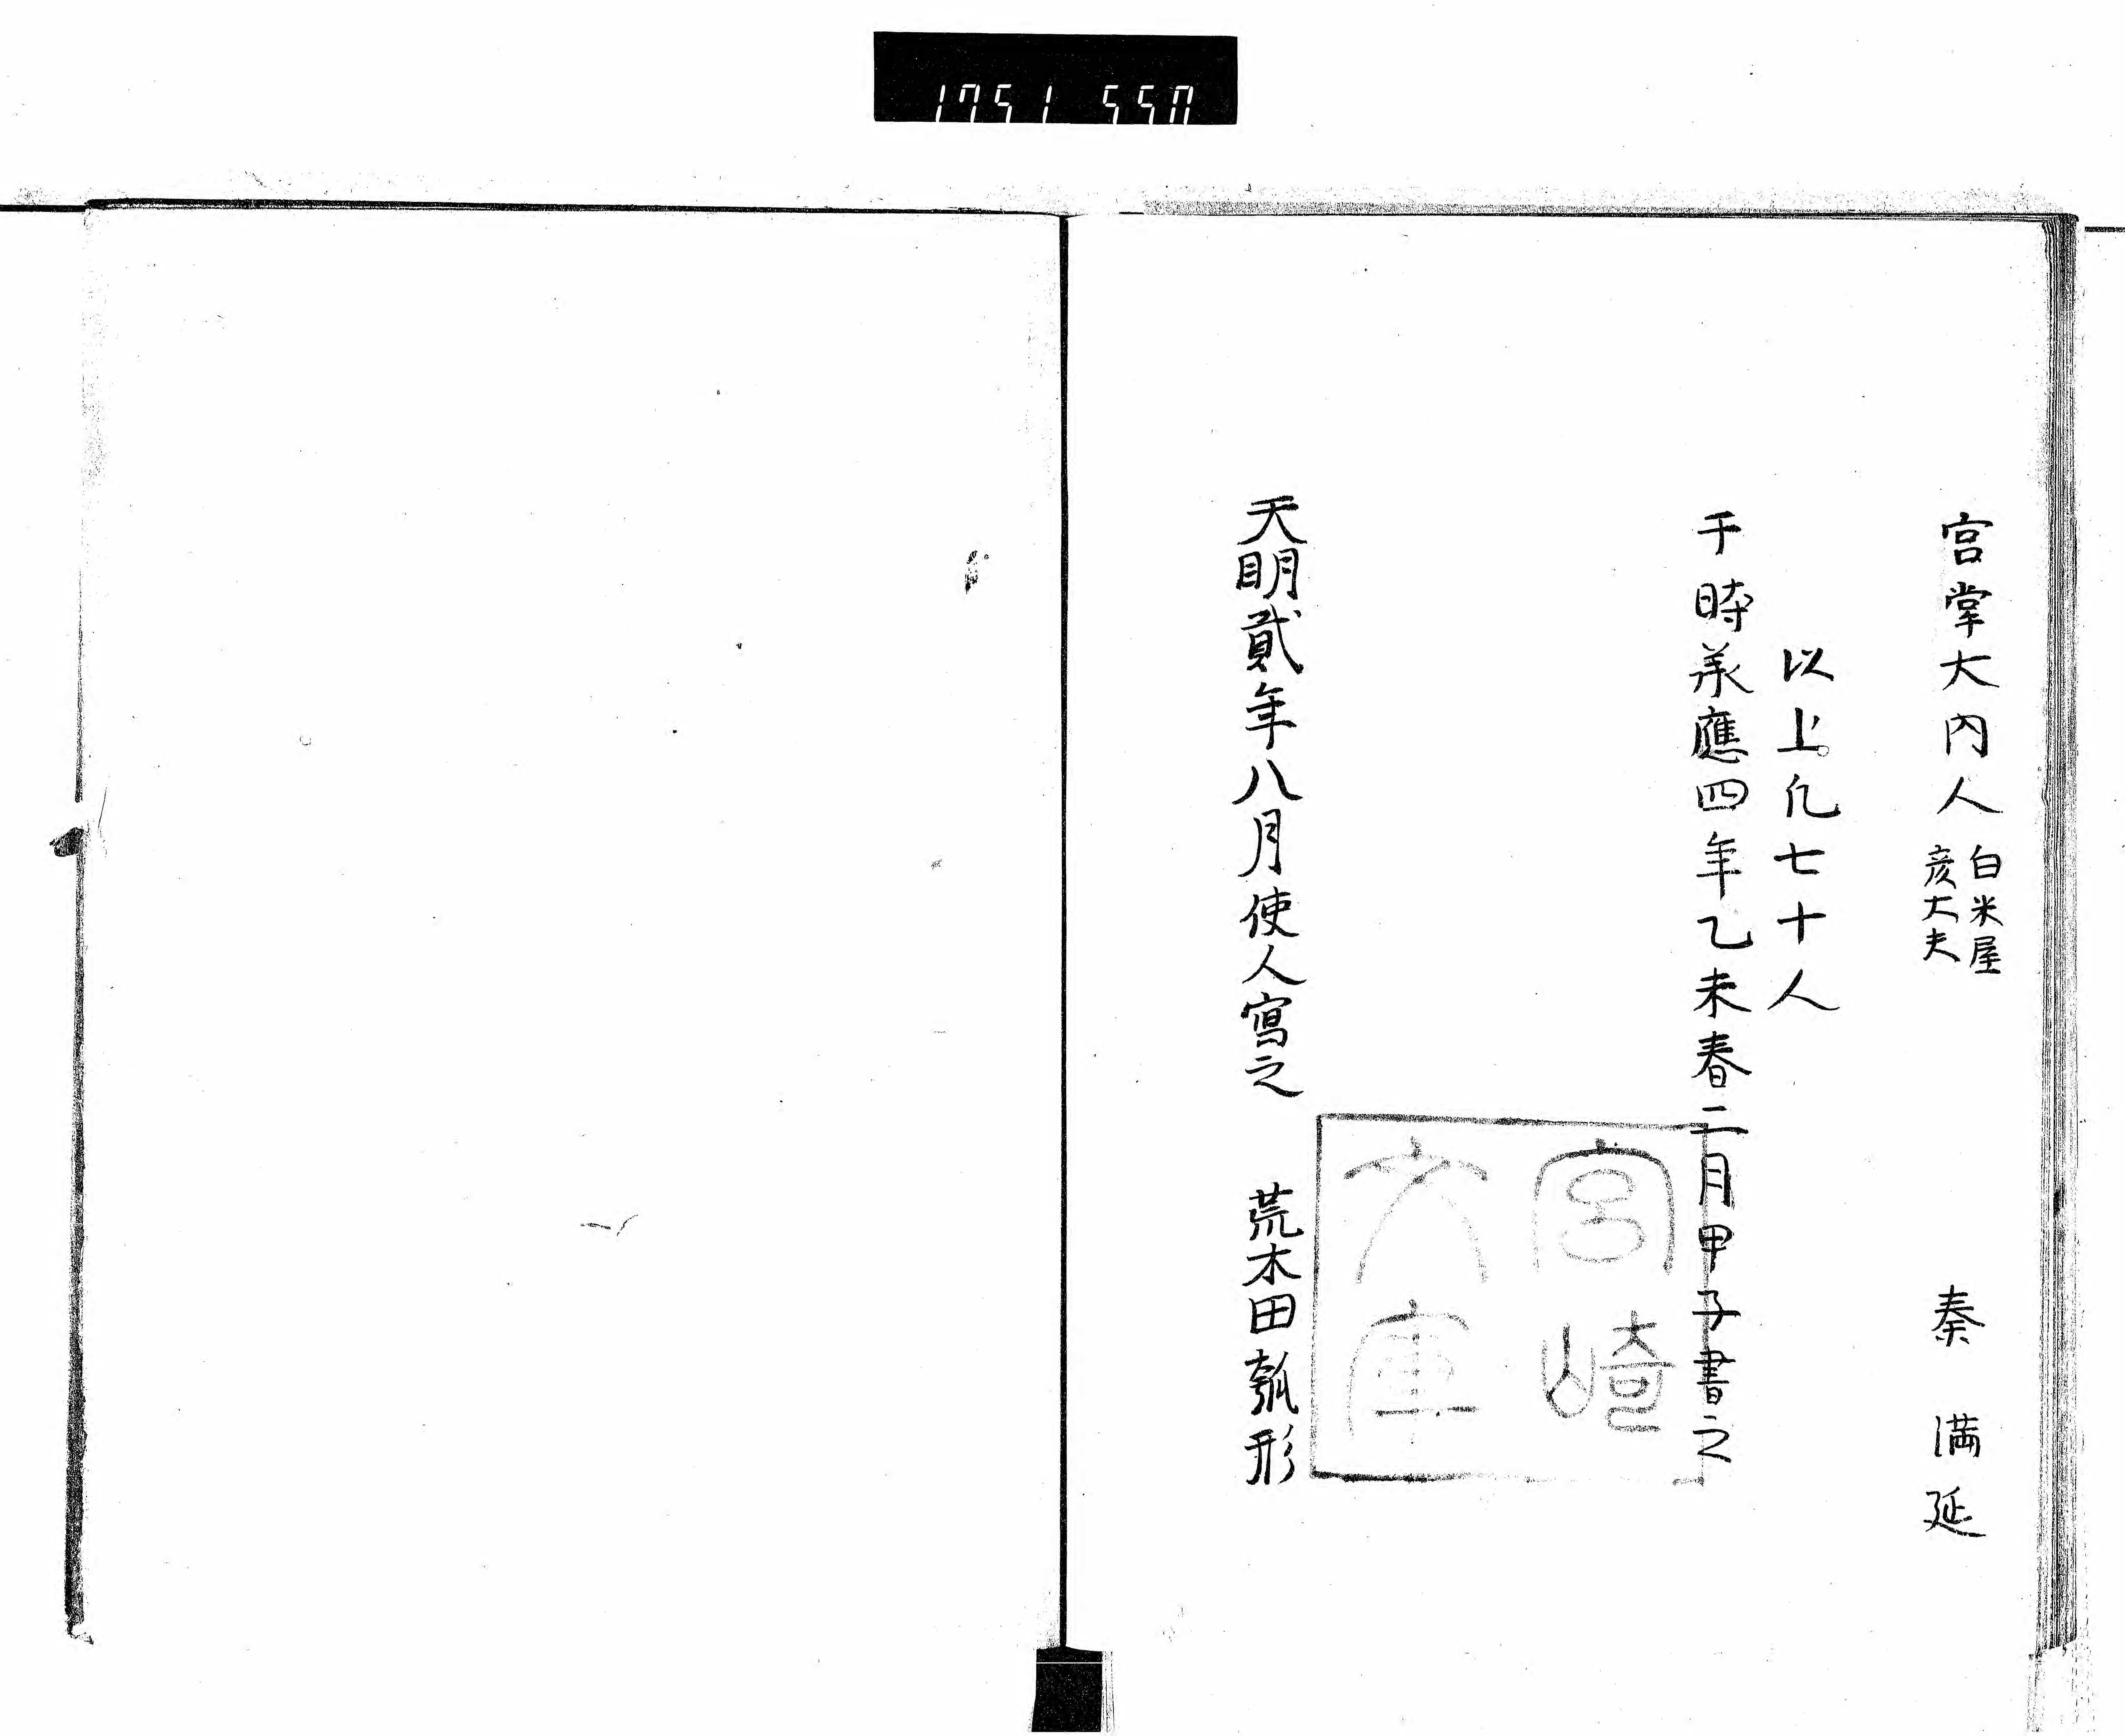 宮掌大内人 白米屋 彦大夫 秦満延
以上凢七十人
于時承應四年乙未春二月甲子書之
宮崎
文庫
天明貳年八月使人寫之 荒木田瓠形